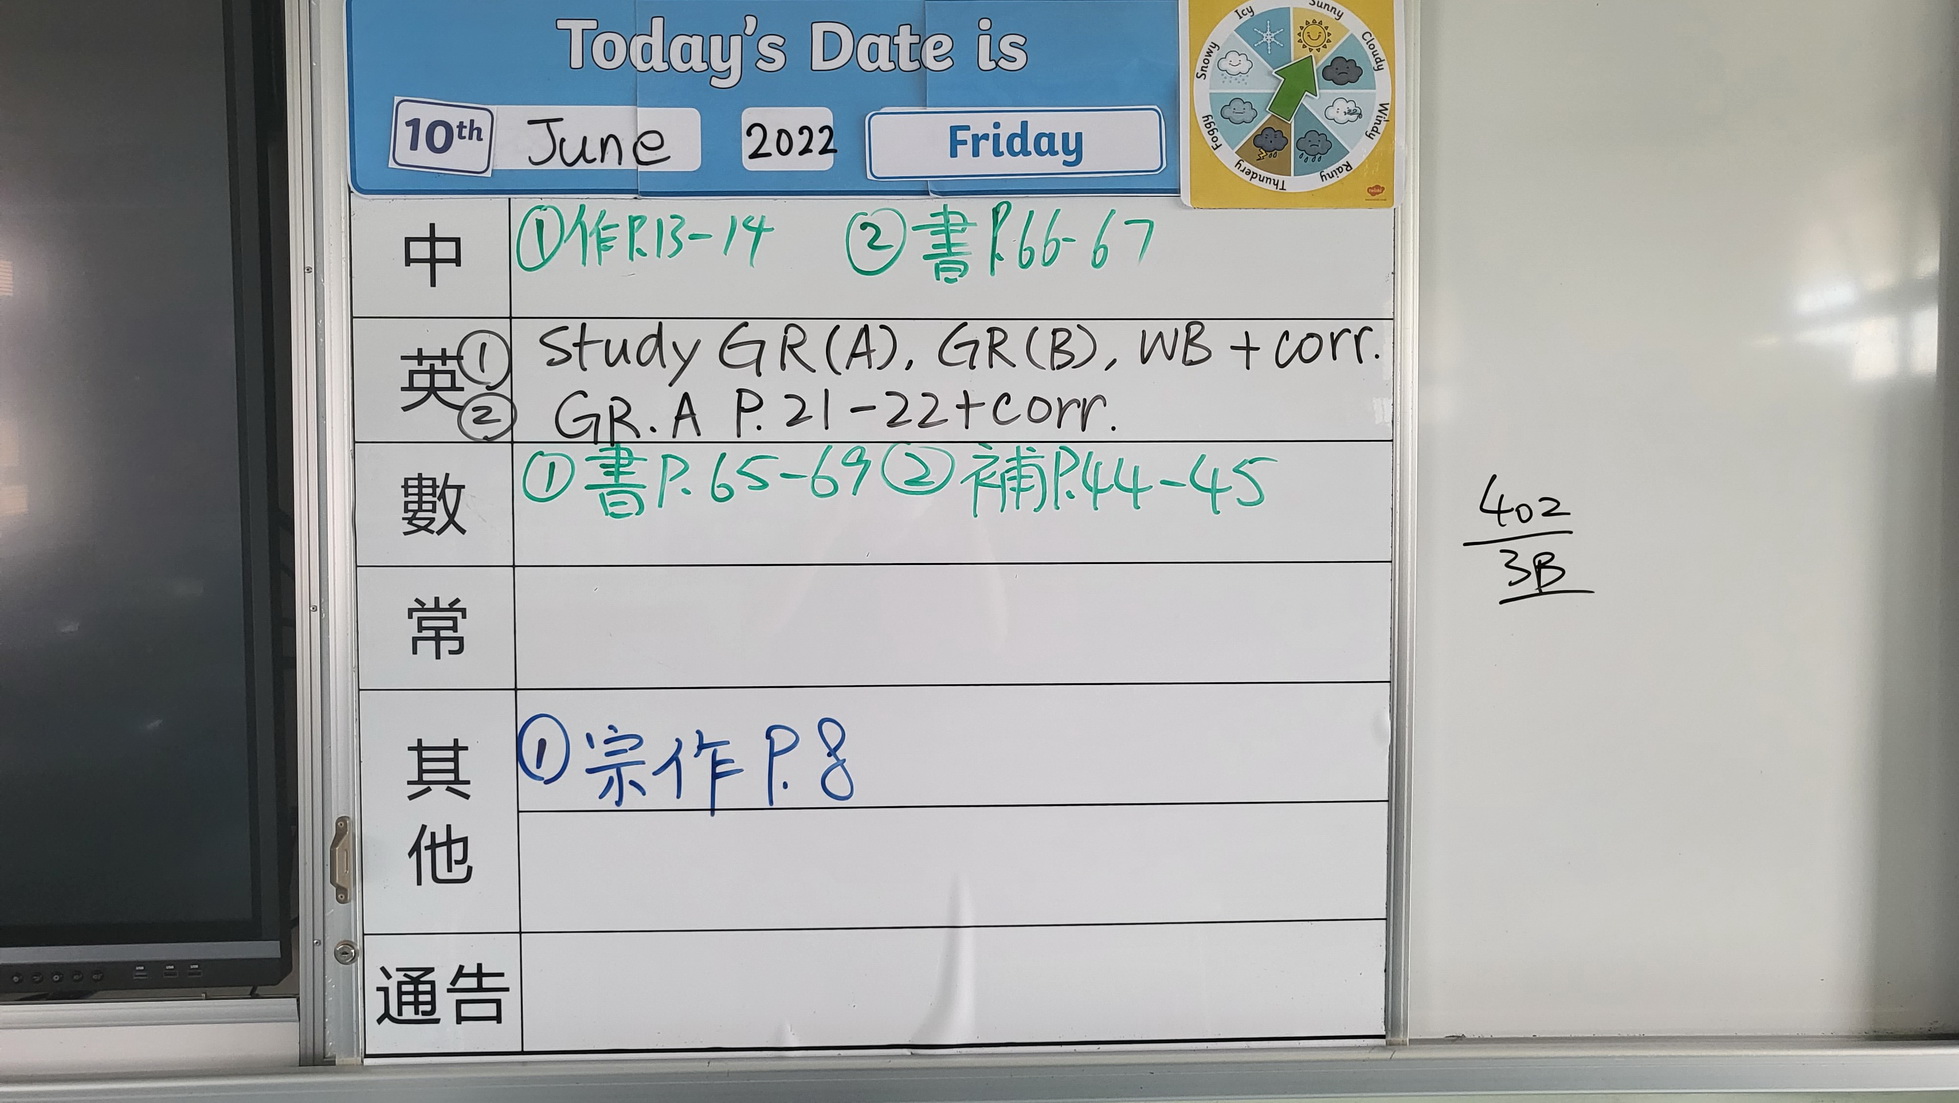 Today's Date is
10th June 2022 Friday
Icy
Sunny
Cloudy
Windy
Rainy
Thundery
Foggy
Snowy
中 ①作P.13-14 ②書P.66-67
英 ① Study GR(A), GR(B), WB + corr.
② GR.A P.21-22+corr.
數 ①書P.65-69 ②補P.44-45
常
其他 ①宗作P.8
通告
402
3B